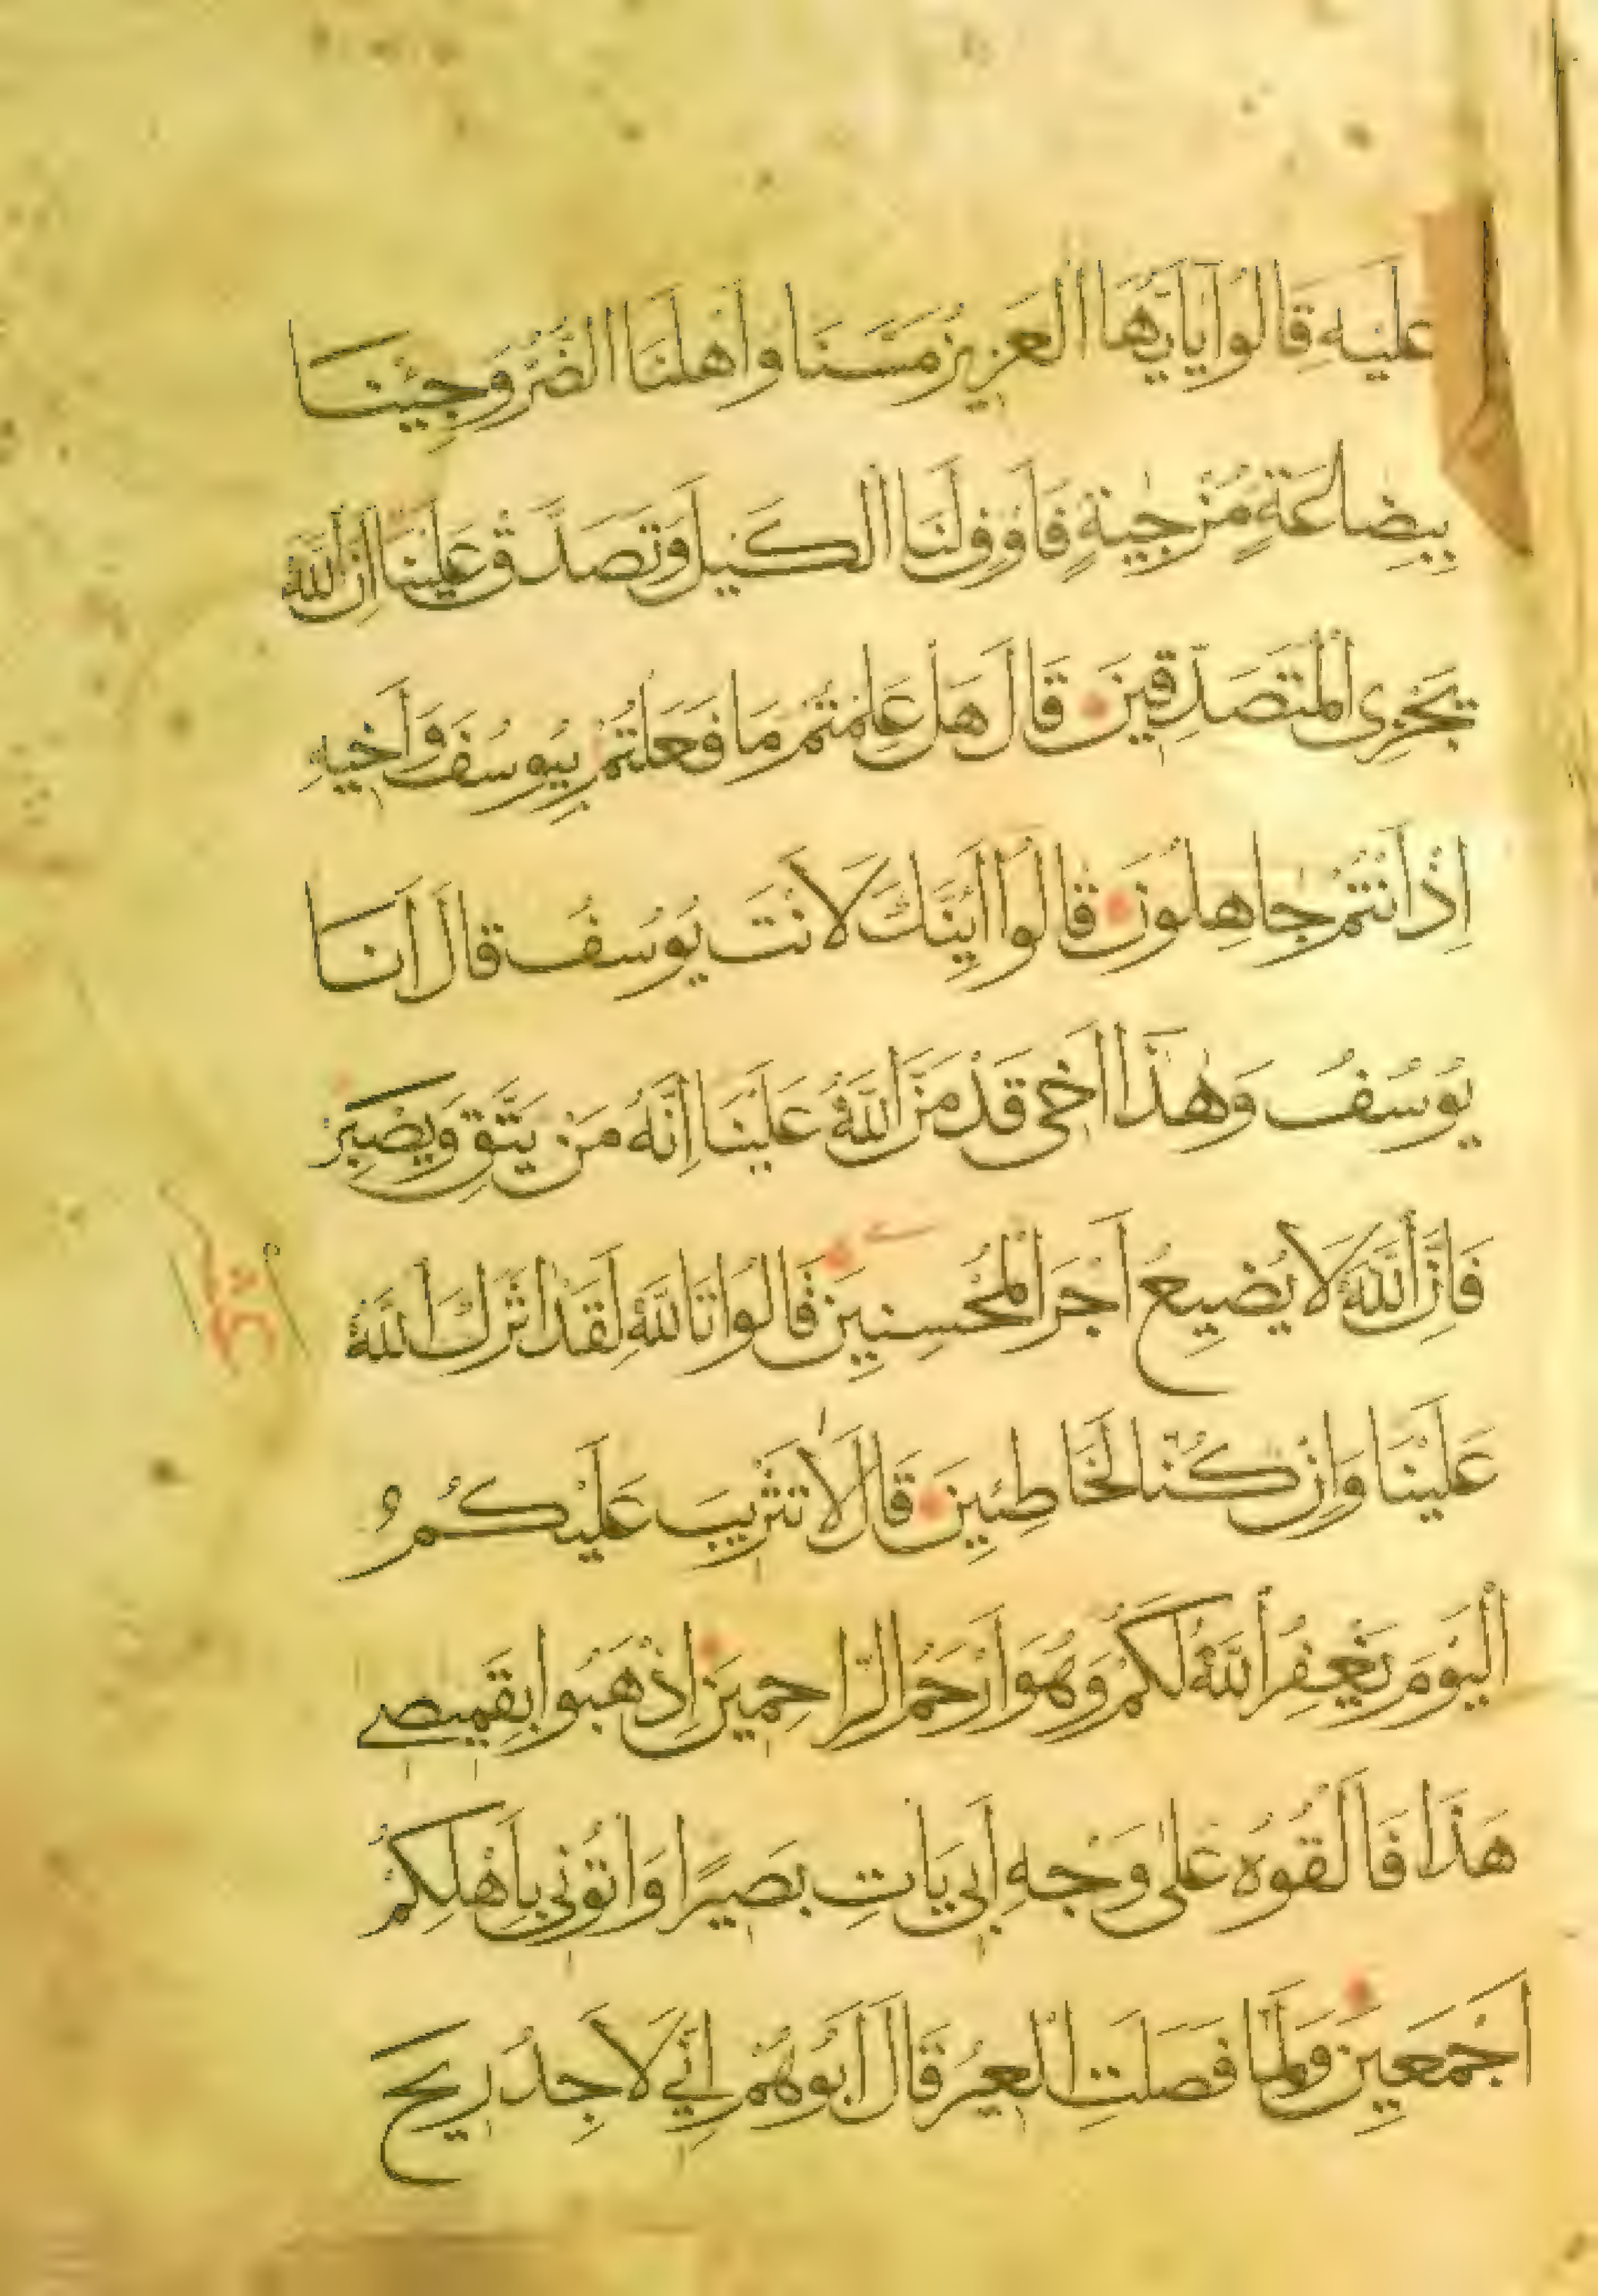 عليه قالوا يا ايها العزيز مسنا واهلنا الضر وجئنا
ببضاعة مزجية فاوف لنا الكيل وتصدق علينا ان الله
يجزى المتصدقين قال هل علمتم ما فعلتم بيوسف واخيه
اذ انتم جاهلون قالوا ائنك لانت يوسف قال انا
يوسف وهذا اخى قد من الله علينا انه من يتق ويصبر
فان الله لا يضيع اجر المحسنين قالوا تالله لقد اثرك الله
علينا وان كنا لخاطئين قال لا تثريب عليكم
اليوم يغفر الله لكم وهو ارحم الراحمين اذهبوا بقميصي
هذا فالقوه على وجه ابي يات بصيرا واتوني باهلكم
اجمعين ولما فصلت العير قال ابوهم اني لاجد ريح